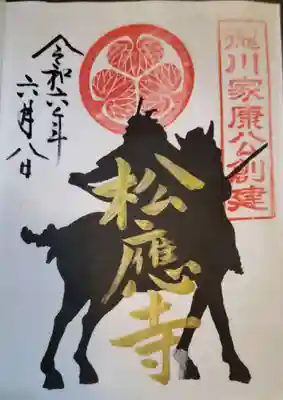 徳川家康公創建
松應寺
令和六年
六月八日